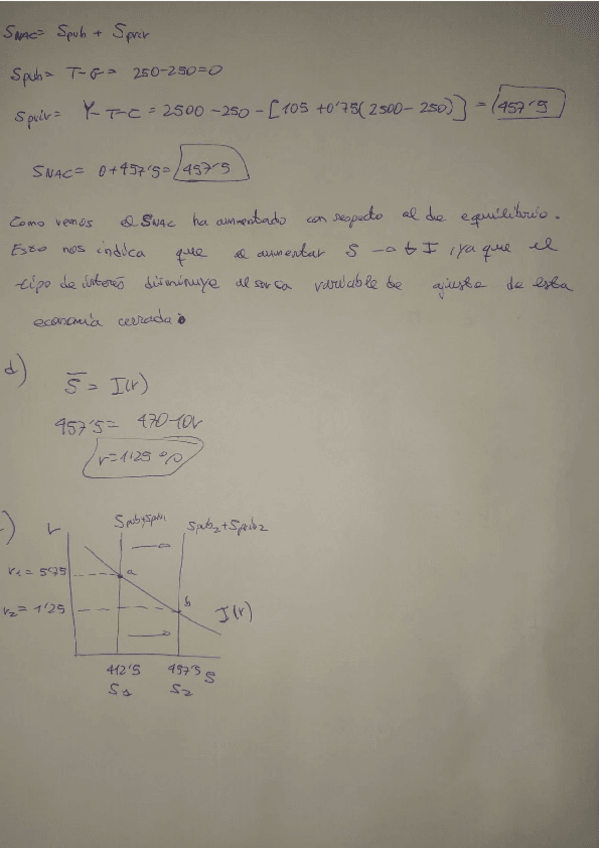 S_NAC = S_pub + S_priv
S_pub = T-G = 250-250=0
S_priv = Y-T-C = 2500-250-[105+0'75(2500-250)] = 457'5
S_NAC = 0+457'5=457'5
Como vemos el S_NAC ha aumentado con respecto al de equilibrio.
Esto nos indica que al aumentar S → I, ya que el
tipo de interés disminuye al ser la variable de ajuste de esta
economía cerrada.
d)
S̄ = I(r)
457'5 = 470-10r
r=1'25 %
r
S_pub1+S_priv1
S_pub2+S_priv2
r₁ = 5'75
a
r₂ = 1'25
b
I(r)
412'5 457'5 S
S₁ S₂